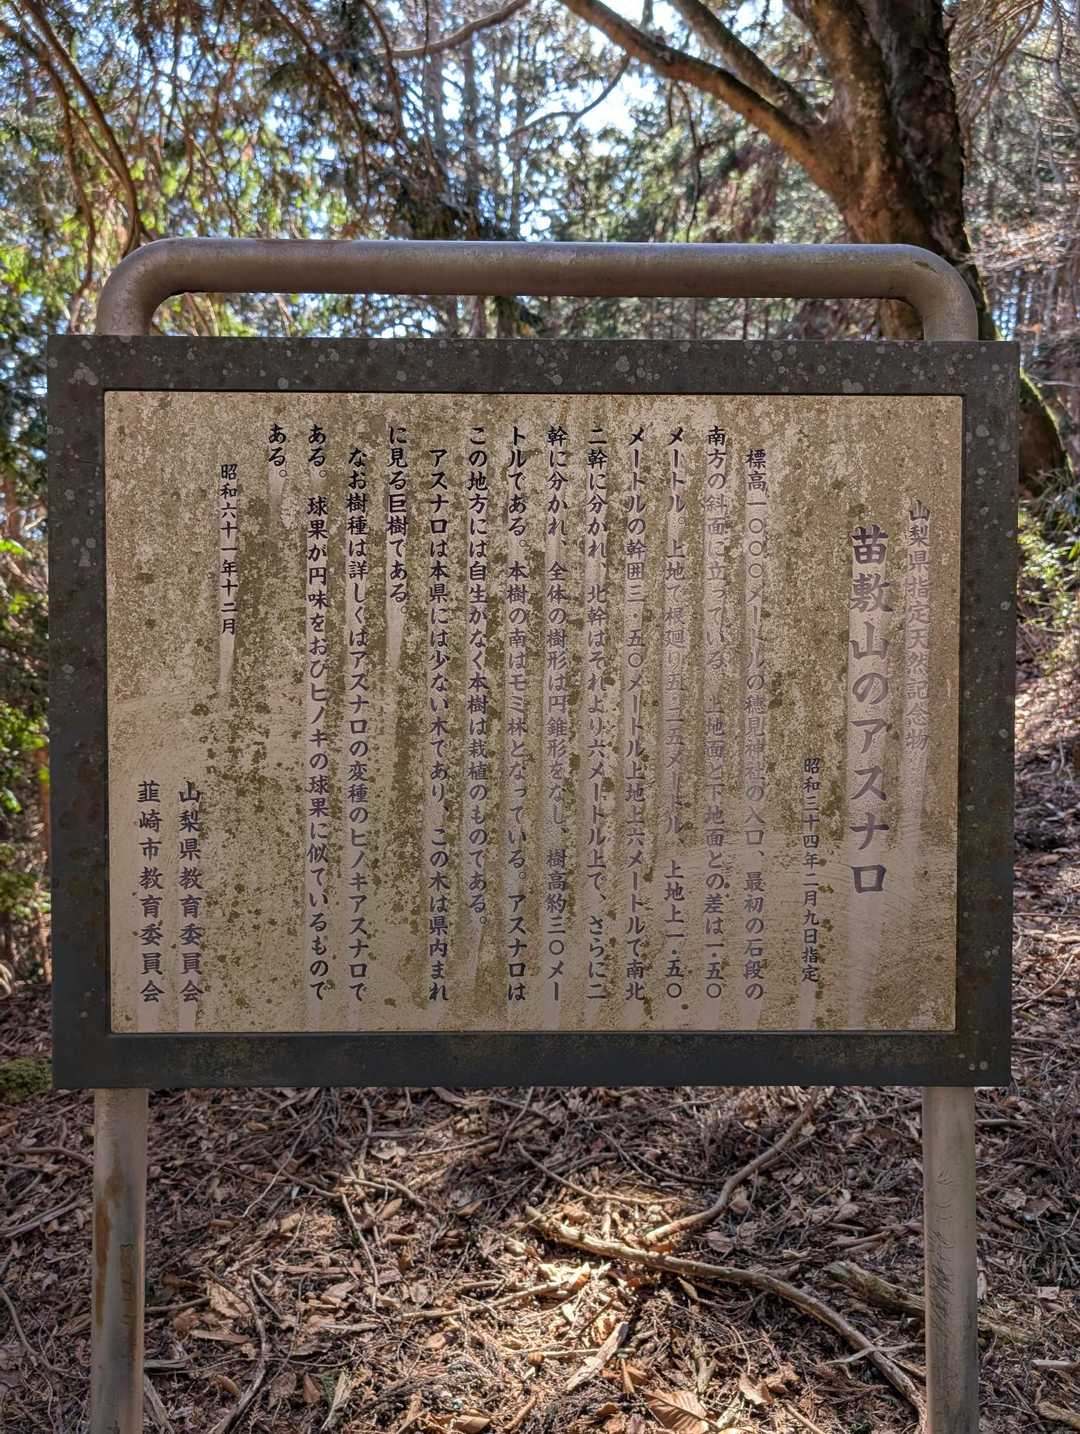 山梨県指定天然記念物
苗敷山のアスナロ
昭和三十四年二月九日指定
標高一〇〇〇メートルの穂見神社の入口、最初の石段の
南方の斜面に立っている。上地面と下地面との差は一・五〇
メートル。上地で根廻り五・二五メートル、上地上一・五〇
メートルの幹囲三・五〇メートル上地上六メートルで南北
二幹に分かれ、北幹はそれより六メートル上で、さらに二
幹に分かれ、全体の樹形は円錐形をなし、樹高約三〇メー
トルである。本樹の南はモミ林となっている。アスナロは
この地方には自生がなく本樹は栽植のものである。
アスナロは本県には少ない木であり、この木は県内まれ
に見る巨樹である。
なお樹種は詳しくはアスナロの変種のヒノキアスナロで
ある。球果が円味をおびヒノキの球果に似ているもので
ある。
昭和六十一年十二月
山梨県教育委員会
韮崎市教育委員会